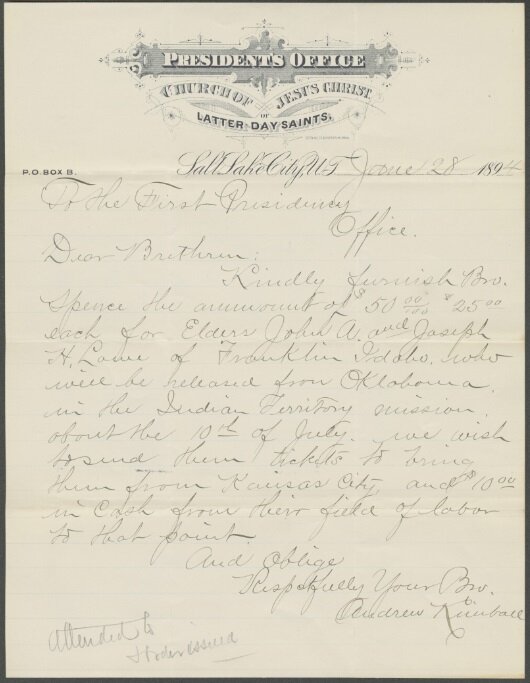 PRESIDENT'S OFFICE
CHURCH OF JESUS CHRIST
OF
LATTER-DAY SAINTS.
P.O. BOX B.
Salt Lake City, U.T. June 28 1894
To the First Presidency
Office.
Dear Brethren;
Kindly furnish Bro.
Spence the ammount of $50 00/100 $25 00
each for Elders John A. and Joseph
H. Lowe of Franklin Idaho, who
will be released from Oklahoma,
in the Indian Territory mission,
about the 10th of July. we wish
to send them tickets to bring
them from Kansas City, and $10 00
in Cash from their field of labor
to that point.
And oblige
Respectfully Your Bro.
Andrew Kimball
Attended to
& order issued